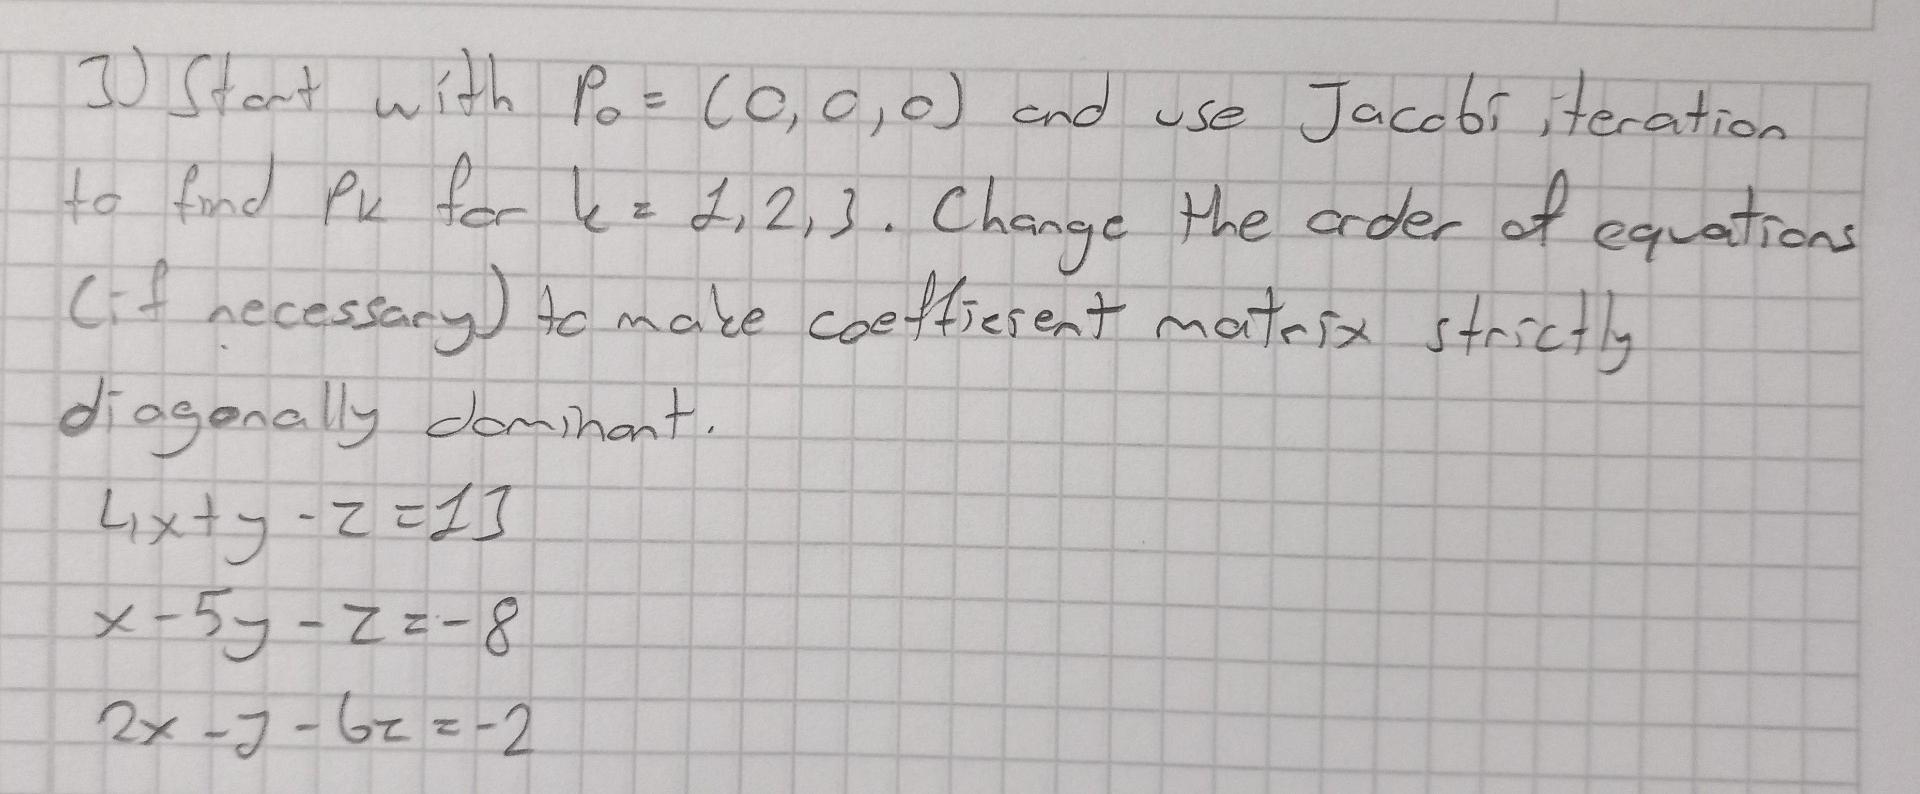 3) Start with P₀ = (0, 0, 0) and use Jacobi iteration
to find Pk for k = 1, 2, 3. Change the order of equations
(if necessary) to make coefficient matrix strictly
diagonally dominant.
4x+y-z=13
x-5y-z=-8
2x-y-6z=-2